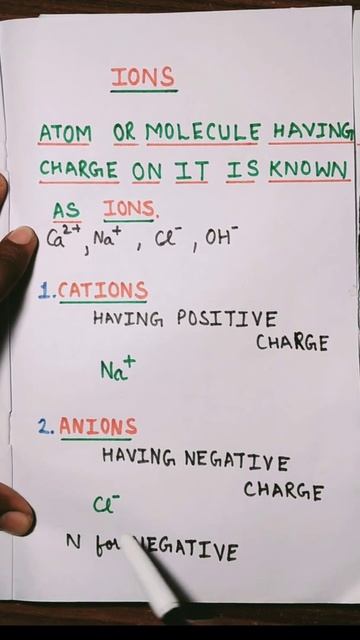 IONS
ATOM OR MOLECULE HAVING
CHARGE ON IT IS KNOWN
AS IONS.
Ca²⁺, Na⁺, Cl⁻, OH⁻
1. CATIONS
HAVING POSITIVE
CHARGE
Na⁺
2. ANIONS
HAVING NEGATIVE
CHARGE
Cl⁻
N for NEGATIVE